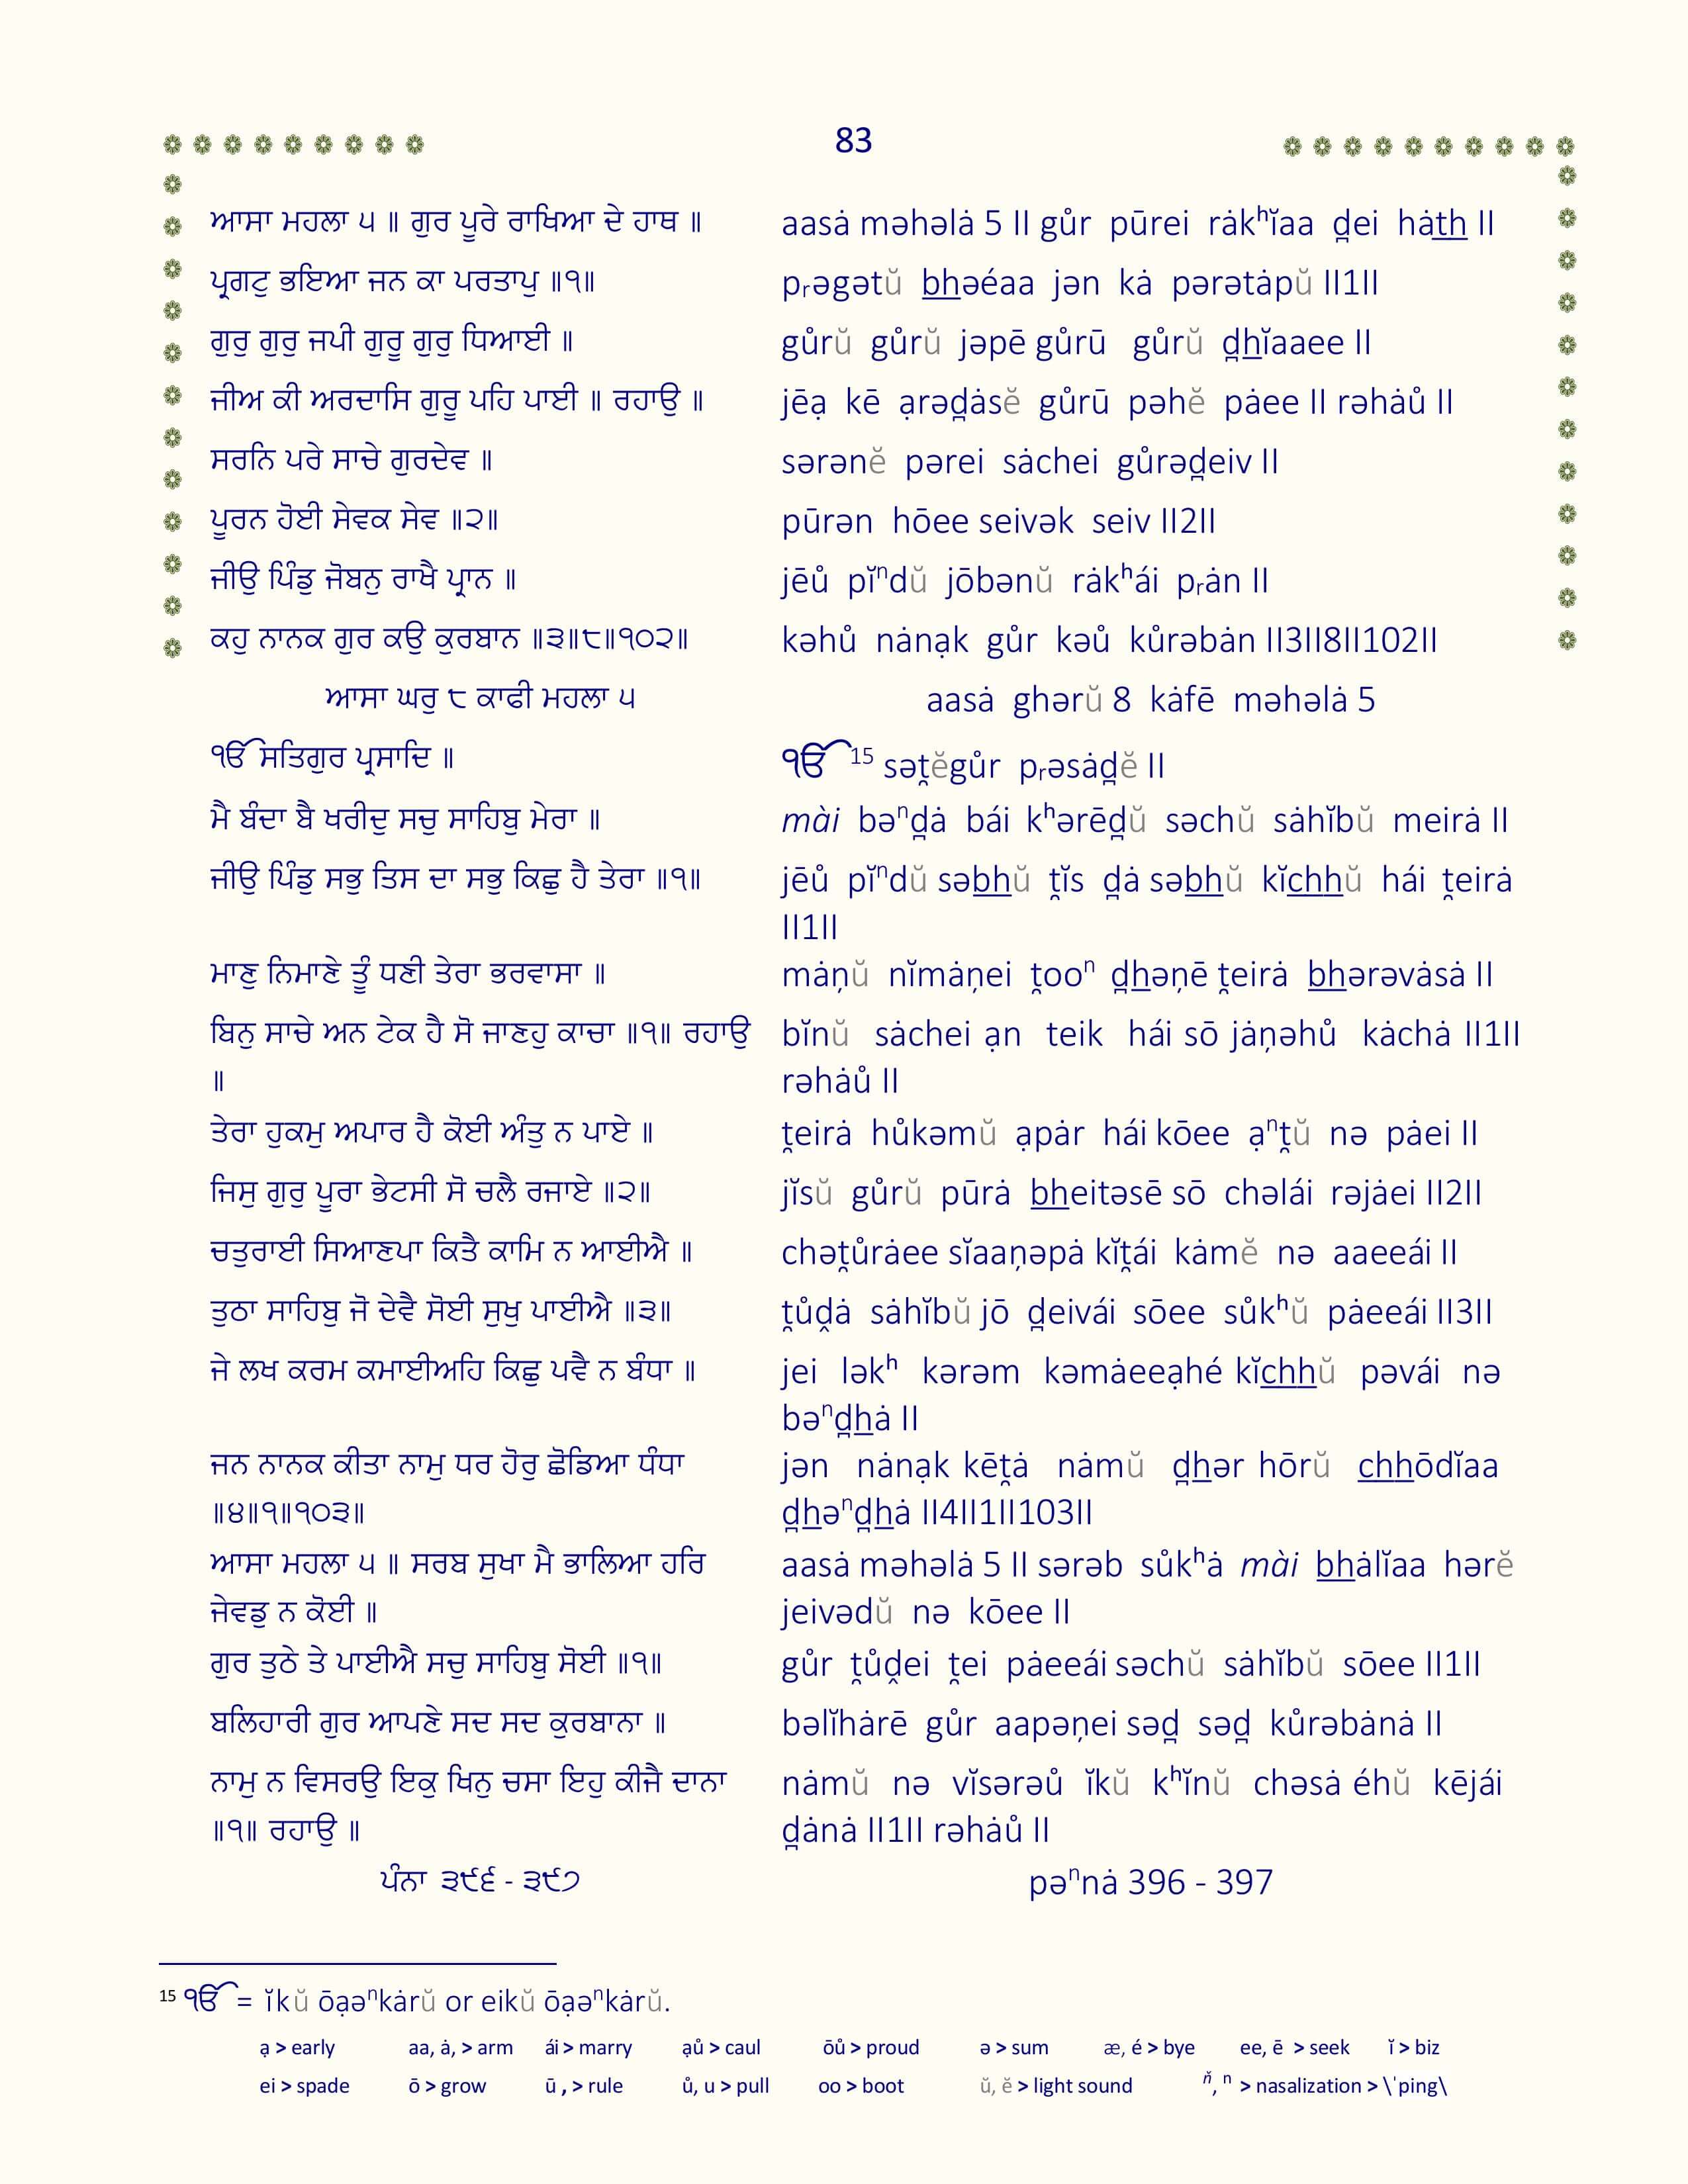 83
ਆਸਾ ਮਹਲਾ ੫ ॥ ਗੁਰ ਪੂਰੇ ਰਾਖਿਆ ਦੇ ਹਾਥ ॥
aasȧ məhəlȧ 5 II gůr pūrei rȧkʰĭaa d̪ei hȧt̲h̲ II
ਪ੍ਰਗਟੁ ਭਇਆ ਜਨ ਕਾ ਪਰਤਾਪੁ ॥੧॥
pᵣəgətŭ b̲h̲əéaa jən kȧ pərətȧpŭ II1II
ਗੁਰੁ ਗੁਰੁ ਜਪੀ ਗੁਰੂ ਗੁਰੁ ਧਿਆਈ ॥
gůrŭ gůrŭ jəpē gůrū gůrŭ d̪h̲ĭaaee II
ਜੀਅ ਕੀ ਅਰਦਾਸਿ ਗੁਰੂ ਪਹਿ ਪਾਈ ॥ ਰਹਾਉ ॥
jēạ kē ạrəd̪ȧsĕ gůrū pəhĕ pȧee II rəhȧů II
ਸਰਨਿ ਪਰੇ ਸਾਚੇ ਗੁਰਦੇਵ ॥
sərənĕ pərei sȧchei gůrəd̪eiv II
ਪੂਰਨ ਹੋਈ ਸੇਵਕ ਸੇਵ ॥੨॥
pūrən hōee seivək seiv II2II
ਜੀਉ ਪਿੰਡੁ ਜੋਬਨੁ ਰਾਖੈ ਪ੍ਰਾਨ ॥
jēů pĭⁿdŭ jōbənŭ rȧkʰái pᵣȧn II
ਕਹੁ ਨਾਨਕ ਗੁਰ ਕਉ ਕੁਰਬਾਨ ॥੩॥੮॥੧੦੨॥
kəhů nȧnạk gůr kəů kůrəbȧn II3II8II102II
ਆਸਾ ਘਰੁ ੮ ਕਾਫੀ ਮਹਲਾ ੫
aasȧ ghərŭ 8 kȧfē məhəlȧ 5
ੴ ਸਤਿਗੁਰ ਪ੍ਰਸਾਦਿ ॥
ੴ 15 sət̪ĕgůr pᵣəsȧd̪ĕ II
ਮੈ ਬੰਦਾ ਬੈ ਖਰੀਦੁ ਸਚੁ ਸਾਹਿਬੁ ਮੇਰਾ ॥
mài bəⁿd̪ȧ bái kʰərēd̪ŭ səchŭ sȧhĭbŭ meirȧ II
ਜੀਉ ਪਿੰਡੁ ਸਭੁ ਤਿਸ ਦਾ ਸਭੁ ਕਿਛੁ ਹੈ ਤੇਰਾ ॥੧॥
jēů pĭⁿdŭ səb̲h̲ŭ t̪ĭs d̪ȧ səb̲h̲ŭ kĭc̲h̲h̲ŭ hái t̪eirȧ
II1II
ਮਾਣੁ ਨਿਮਾਣੇ ਤੂੰ ਧਣੀ ਤੇਰਾ ਭਰਵਾਸਾ ॥
mȧṇŭ nĭmȧṇei t̪ooⁿ d̪h̲əṇē t̪eirȧ b̲h̲ərəvȧsȧ II
ਬਿਨੁ ਸਾਚੇ ਅਨ ਟੇਕ ਹੈ ਸੋ ਜਾਣਹੁ ਕਾਚਾ ॥੧॥ ਰਹਾਉ
॥
bĭnŭ sȧchei ạn teik hái sō jȧṇəhů kȧchȧ II1II
rəhȧů II
ਤੇਰਾ ਹੁਕਮੁ ਅਪਾਰ ਹੈ ਕੋਈ ਅੰਤੁ ਨ ਪਾਏ ॥
t̪eirȧ hůkəmŭ ạpȧr hái kōee ạⁿt̪ŭ nə pȧei II
ਜਿਸੁ ਗੁਰੁ ਪੂਰਾ ਭੇਟਸੀ ਸੋ ਚਲੈ ਰਜਾਏ ॥੨॥
jĭsŭ gůrŭ pūrȧ b̲h̲eitəsē sō chəlái rəjȧei II2II
ਚਤੁਰਾਈ ਸਿਆਣਪਾ ਕਿਤੈ ਕਾਮਿ ਨ ਆਈਐ ॥
chət̪ůrȧee sĭaaṇəpȧ kĭt̪ái kȧmĕ nə aaeeái II
ਤੁਠਾ ਸਾਹਿਬੁ ਜੋ ਦੇਵੈ ਸੋਈ ਸੁਖੁ ਪਾਈਐ ॥੩॥
t̪ůḓȧ sȧhĭbŭ jō d̪eivái sōee sůkʰŭ pȧeeái II3II
ਜੇ ਲਖ ਕਰਮ ਕਮਾਈਅਹਿ ਕਿਛੁ ਪਵੈ ਨ ਬੰਧਾ ॥
jei ləkʰ kərəm kəmȧeeạhé kĭc̲h̲h̲ŭ pəvái nə
bəⁿd̪h̲ȧ II
ਜਨ ਨਾਨਕ ਕੀਤਾ ਨਾਮੁ ਧਰ ਹੋਰੁ ਛੋਡਿਆ ਧੰਧਾ
॥੪॥੧॥੧੦੩॥
jən nȧnạk kēt̪ȧ nȧmŭ d̪h̲ər hōrŭ c̲h̲h̲ōdĭaa
d̪h̲əⁿd̪h̲ȧ II4II1II103II
ਆਸਾ ਮਹਲਾ ੫ ॥ ਸਰਬ ਸੁਖਾ ਮੈ ਭਾਲਿਆ ਹਰਿ
ਜੇਵਡੁ ਨ ਕੋਈ ॥
aasȧ məhəlȧ 5 II sərəb sůkʰȧ mài b̲h̲ȧlĭaa hərĕ
jeivədŭ nə kōee II
ਗੁਰ ਤੁਠੇ ਤੇ ਪਾਈਐ ਸਚੁ ਸਾਹਿਬੁ ਸੋਈ ॥੧॥
gůr t̪ůḓei t̪ei pȧeeái səchŭ sȧhĭbŭ sōee II1II
ਬਲਿਹਾਰੀ ਗੁਰ ਆਪਣੇ ਸਦ ਸਦ ਕੁਰਬਾਨਾ ॥
bəlĭhȧrē gůr aapəṇei səd̪ səd̪ kůrəbȧnȧ II
ਨਾਮੁ ਨ ਵਿਸਰਉ ਇਕੁ ਖਿਨੁ ਚਸਾ ਇਹੁ ਕੀਜੈ ਦਾਨਾ
॥੧॥ ਰਹਾਉ ॥
nȧmŭ nə vĭsərəů ĭkŭ kʰĭnŭ chəsȧ éhŭ kējái
d̪ȧnȧ II1II rəhȧů II
ਪੰਨਾ ੩੯੬ - ੩੯੭
pəⁿnȧ 396 - 397
15 ੴ = ĭkŭ ōạəⁿkȧrŭ or eikŭ ōạəⁿkȧrŭ.
ạ > early aa, ȧ, > arm ái > marry ạů > caul ōů > proud ə > sum æ, é > bye ee, ē > seek ĭ > biz
ei > spade ō > grow ū , > rule ů, u > pull oo > boot ŭ, ĕ > light sound ň, ⁿ > nasalization > \ˈping\